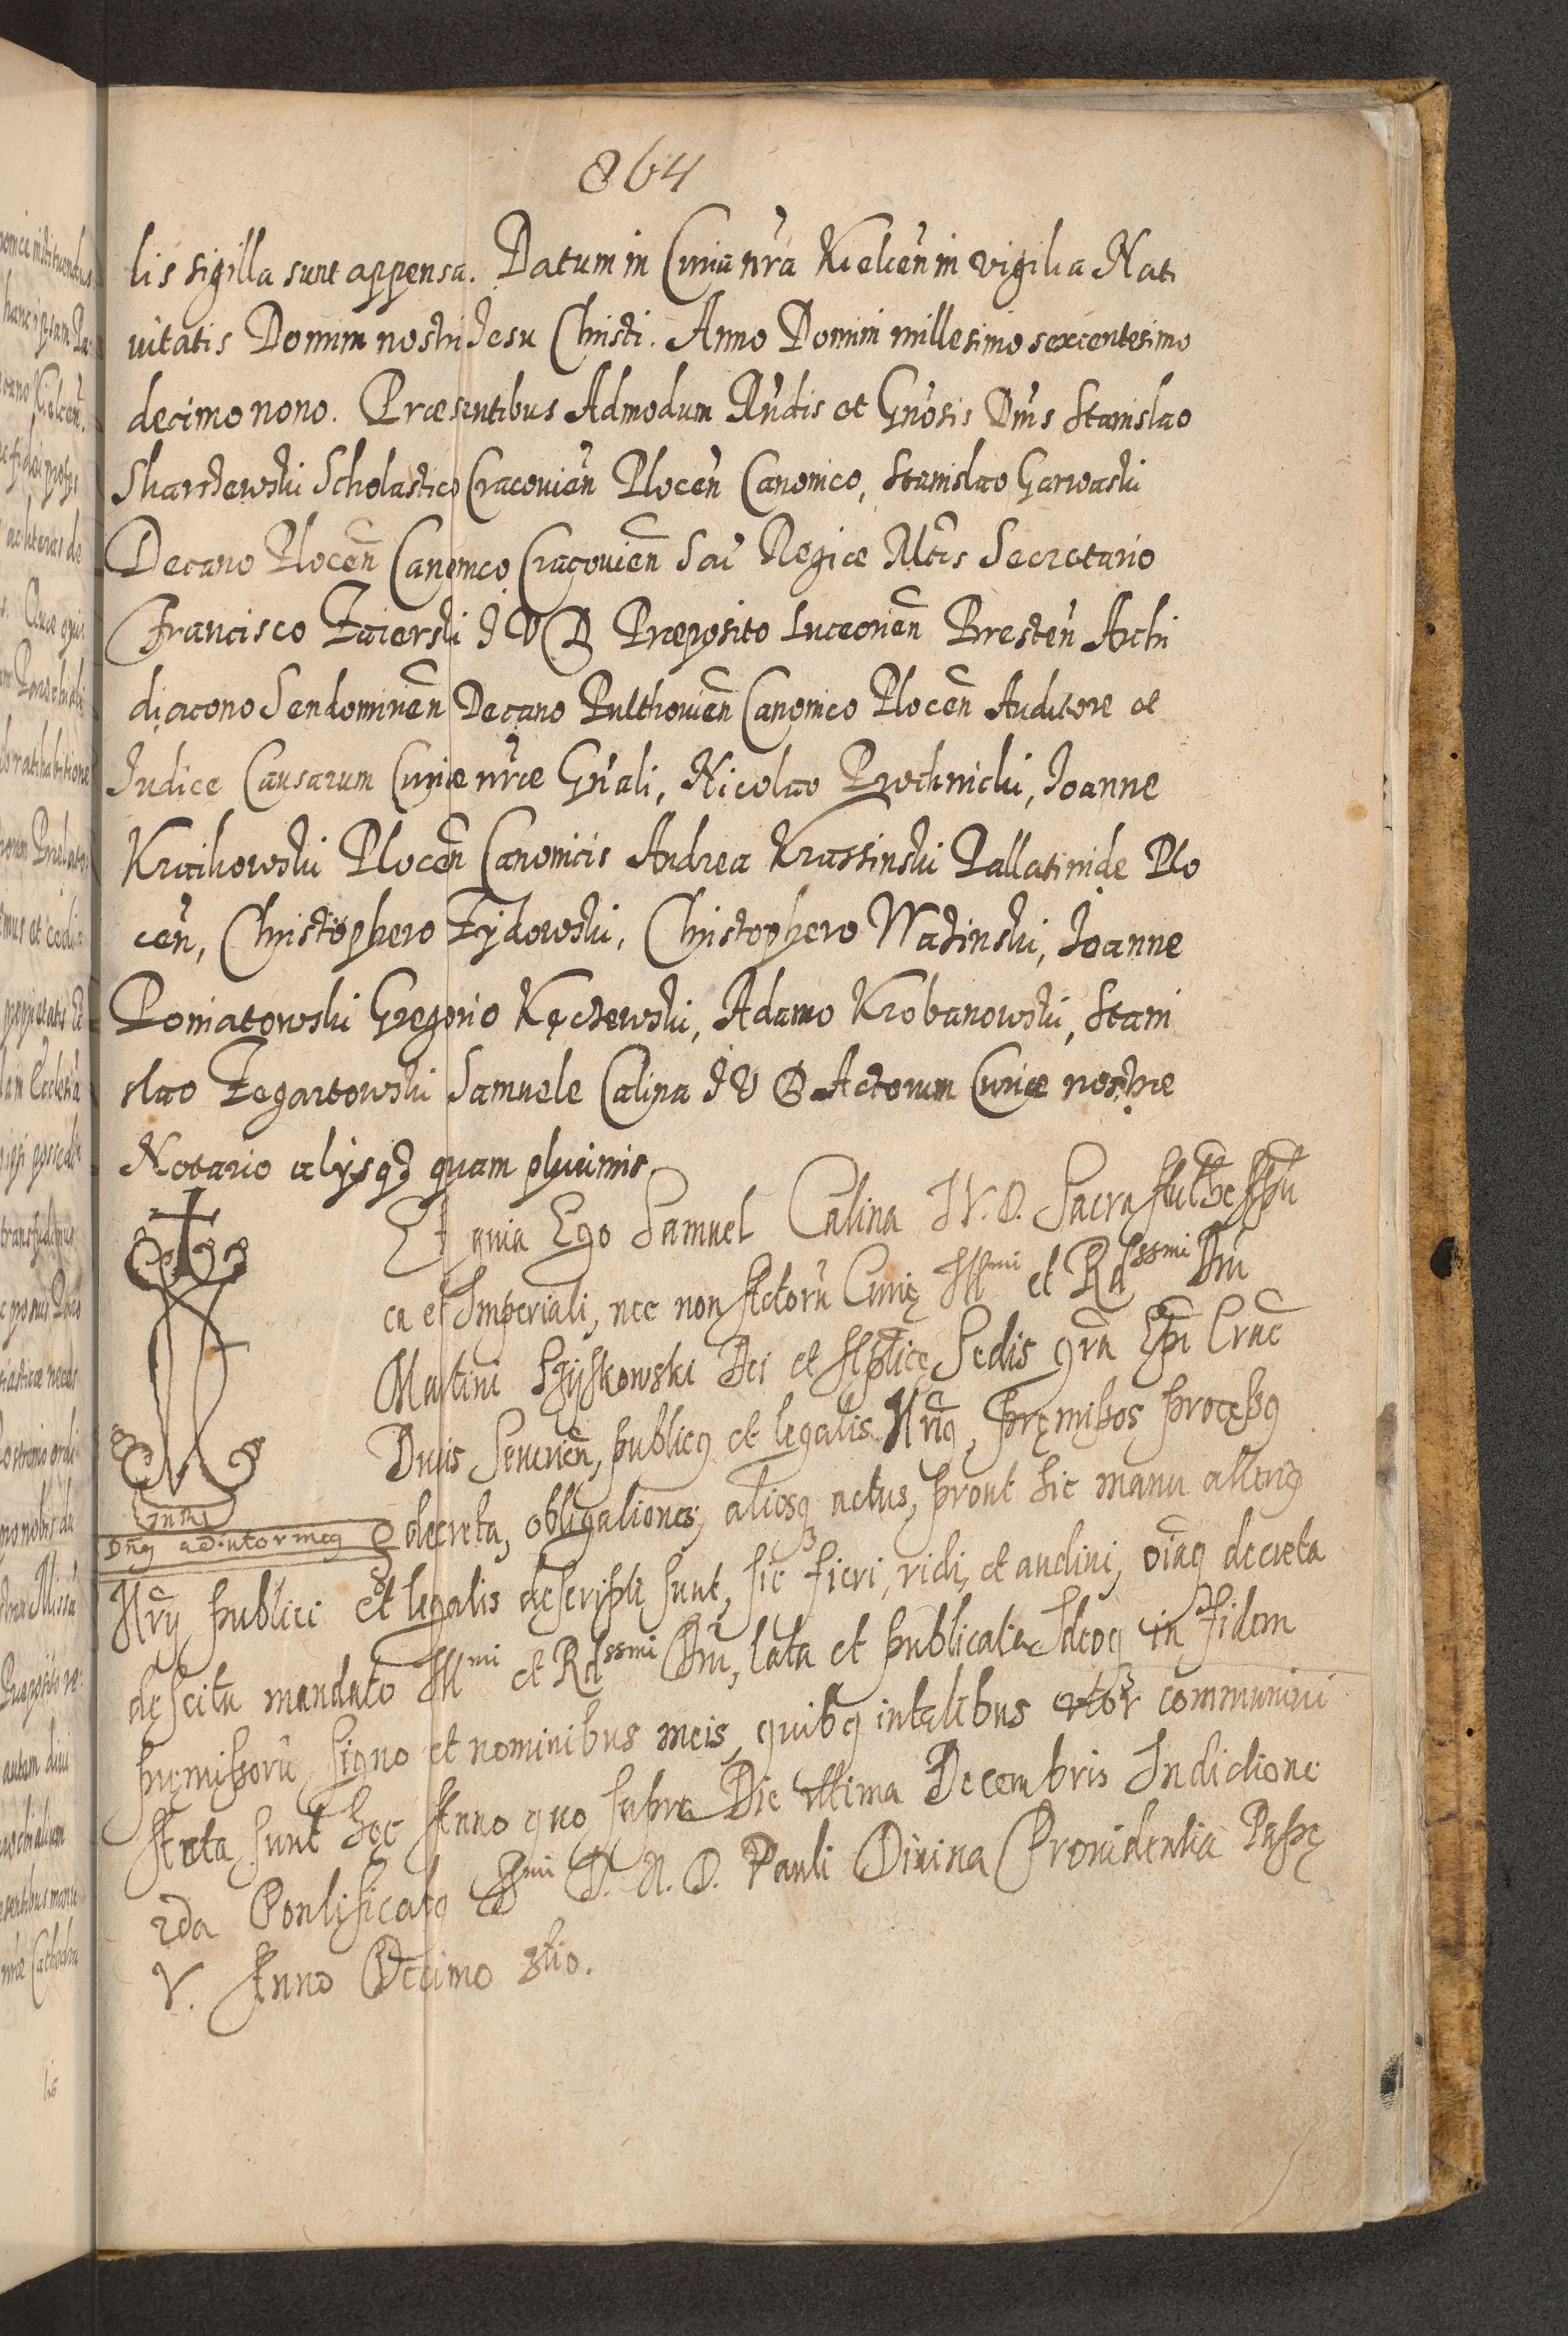 864
lis sigilla sunt appensa. Datum in Curia nr̃a Kielceñ in vigilia Nati
uitatis Domini nostri Iesu Christi. Anno Domini millesimo sexcentesimo
decimo nono. Præsentibus Admodum Rñdis et Gñosis Dñis Stanislao
Skarszewski Scholastico Cracouieñ Ploceñ Canonico, Stanislao Garwaski
Decano Ploceñ Canonico Cracouieñ Sac̃ Regiæ Mt̃is Secretario
Francisco Zaierski I V D Præposito Luceorieñ Bresteñ Archi
diacono Sendomirieñ Decano Pulthouieñ Canonico Ploceñ Auditore et
Iudice Causarum Curiæ nr̃æ Gñali, Nicolao Prochnicki, Ioanne
Kraikowski Ploceñ Canonicis Andrea Krassinski Pallatinide Plo
ceñ, Christophero Zydowski, Christophero Wazinski, Ioanne
Poniatowski Gregorio Kęczewski, Adamo Krobanowski, Stani
slao Zegartowski Samuele Calina I V D Actorum Curiæ nostræ
Notario alysq3 quam plurimis.
Et quia Ego Samuel Calina I.V.D. Sacra Autħe Appli
ca et Imperiali, nec non Actorũ Curię Illmi et Rdssmi Dñi
Martini Szyszkowski Dei et Aplicę Sedis gr̃a Ep̃i Crac̃
Ducis Seuerieñ, publicq et legalis Nr̃iq, pręmissos processq
decreta, obligationes, aliosq actus, prout hic manu alterig
Dñq adiutor meq
Nr̃ij publici et legalis descripti sunt, sic fieri, vidi, et audiui, oĩaq decreta
de scitu mandato Illmi et Rdssmi Dñi, lata et publicata Ideoq in fidem
pręmissorũ signo et nominibus meis, quibq in talibus utor communiui
Acta sunt hoc Anno quo supra Die ultima Decembris Indictione
2da Pontificatq Ssmi D. N. D. Pauli Diuina Prouidentia Papę
V. Anno Decimo 5tio.